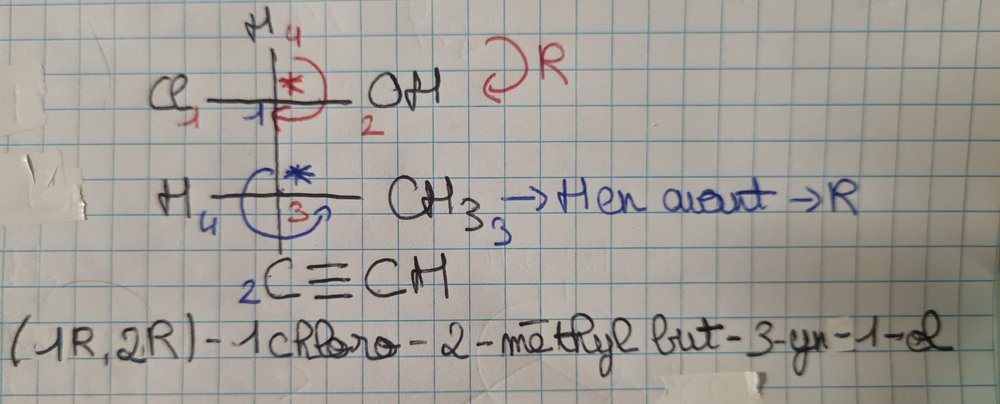 H 4
Cl 1 * 1 OH 2 R
H 4 * 3 CH3 3 → H en avant → R
2 C≡CH
(1R, 2R) - 1 chloro - 2 - méthyl but - 3 - yn - 1 - ol